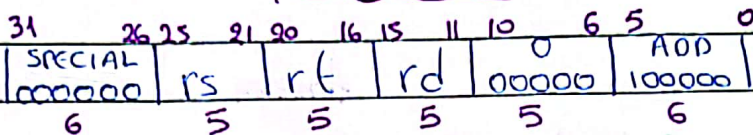 31 26 25 21 20 16 15 11 10 6 5 0
SPECIAL 0 ADD
000000 rs rt rd 00000 100000
6 5 5 5 5 6